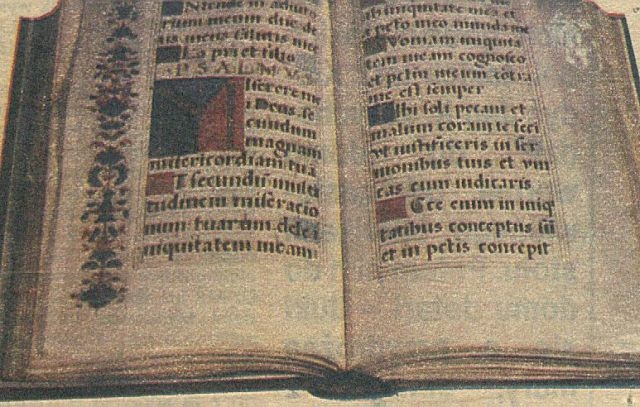 Ntende in adiu
rium meum due de
us meus salutis mee
La pri et filio
PSALMVS
iserere m
i Deus, se
cundum
magnam
misericordiam tua
T secundū multi
tudinem miseracio
num tuarum dele
iniquitatem meam
iniquitate mea et
a peto meo munda me
Voniam iniquita
tem meam cognosco
et petm meum cotra
me est semper
Ibi soli pecaui et
malum coram te feci
vt iustificeris in ser
monibus tuis et vin
cas cum iudicaris
Cce enim in iniq
tatibus conceptus sū
et in petis concepit